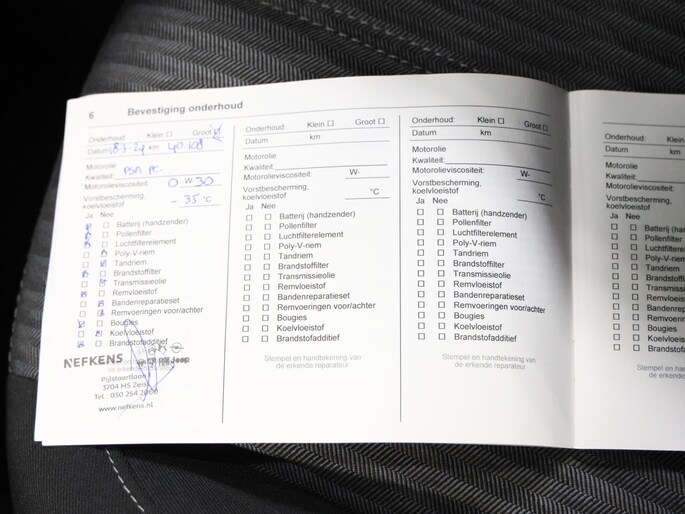 6 Bevestiging onderhoud
Onderhoud: Klein Groot
Datum km
Motorolie
Kwaliteit: PSA
Motorolieviscositeit: 0 W- 30
Vorstbescherming,
koelvloeistof - 35 °C
Ja Nee
Batterij (handzender)
Pollenfilter
Luchtfilterelement
Poly-V-riem
Tandriem
Brandstoffilter
Transmissieolie
Remvloeistof
Bandenreparatieset
Remvoeringen voor/achter
Bougies
Koelvloeistof
Brandstofadditief
NEFKENS Jeep
Pijlstaartlaan
3704 HS Zeist
Tel.: 030 254
www.nefkens.nl
Onderhoud: Klein Groot
Datum km
Motorolie
Kwaliteit:
Motorolieviscositeit: W-
Vorstbescherming,
koelvloeistof °C
Ja Nee
Batterij (handzender)
Pollenfilter
Luchtfilterelement
Poly-V-riem
Tandriem
Brandstoffilter
Transmissieolie
Remvloeistof
Bandenreparatieset
Remvoeringen voor/achter
Bougies
Koelvloeistof
Brandstofadditief
Stempel en handtekening van
de erkende reparateur
Onderhoud: Klein Groot
Datum km
Motorolie
Kwaliteit:
Motorolieviscositeit: W-
Vorstbescherming,
koelvloeistof °C
Ja Nee
Batterij (handzender)
Pollenfilter
Luchtfilterelement
Poly-V-riem
Tandriem
Brandstoffilter
Transmissieolie
Remvloeistof
Bandenreparatieset
Remvoeringen voor/achter
Bougies
Koelvloeistof
Brandstofadditief
Stempel en handtekening van
de erkende reparateur
Onderhoud: Klein
Datum km
Motorolie
Kwaliteit:
Motorolieviscositeit:
Vorstbescherming,
koelvloeistof
Ja Nee
Batterij (han
Pollenfilter
Luchtfilterele
Poly-V-riem
Tandriem
Brandstoffilte
Transmissie
Remvloeist
Bandenrep
Remvoerin
Bougies
Koelvloeist
Brandstofa
Stempel en han
de erken